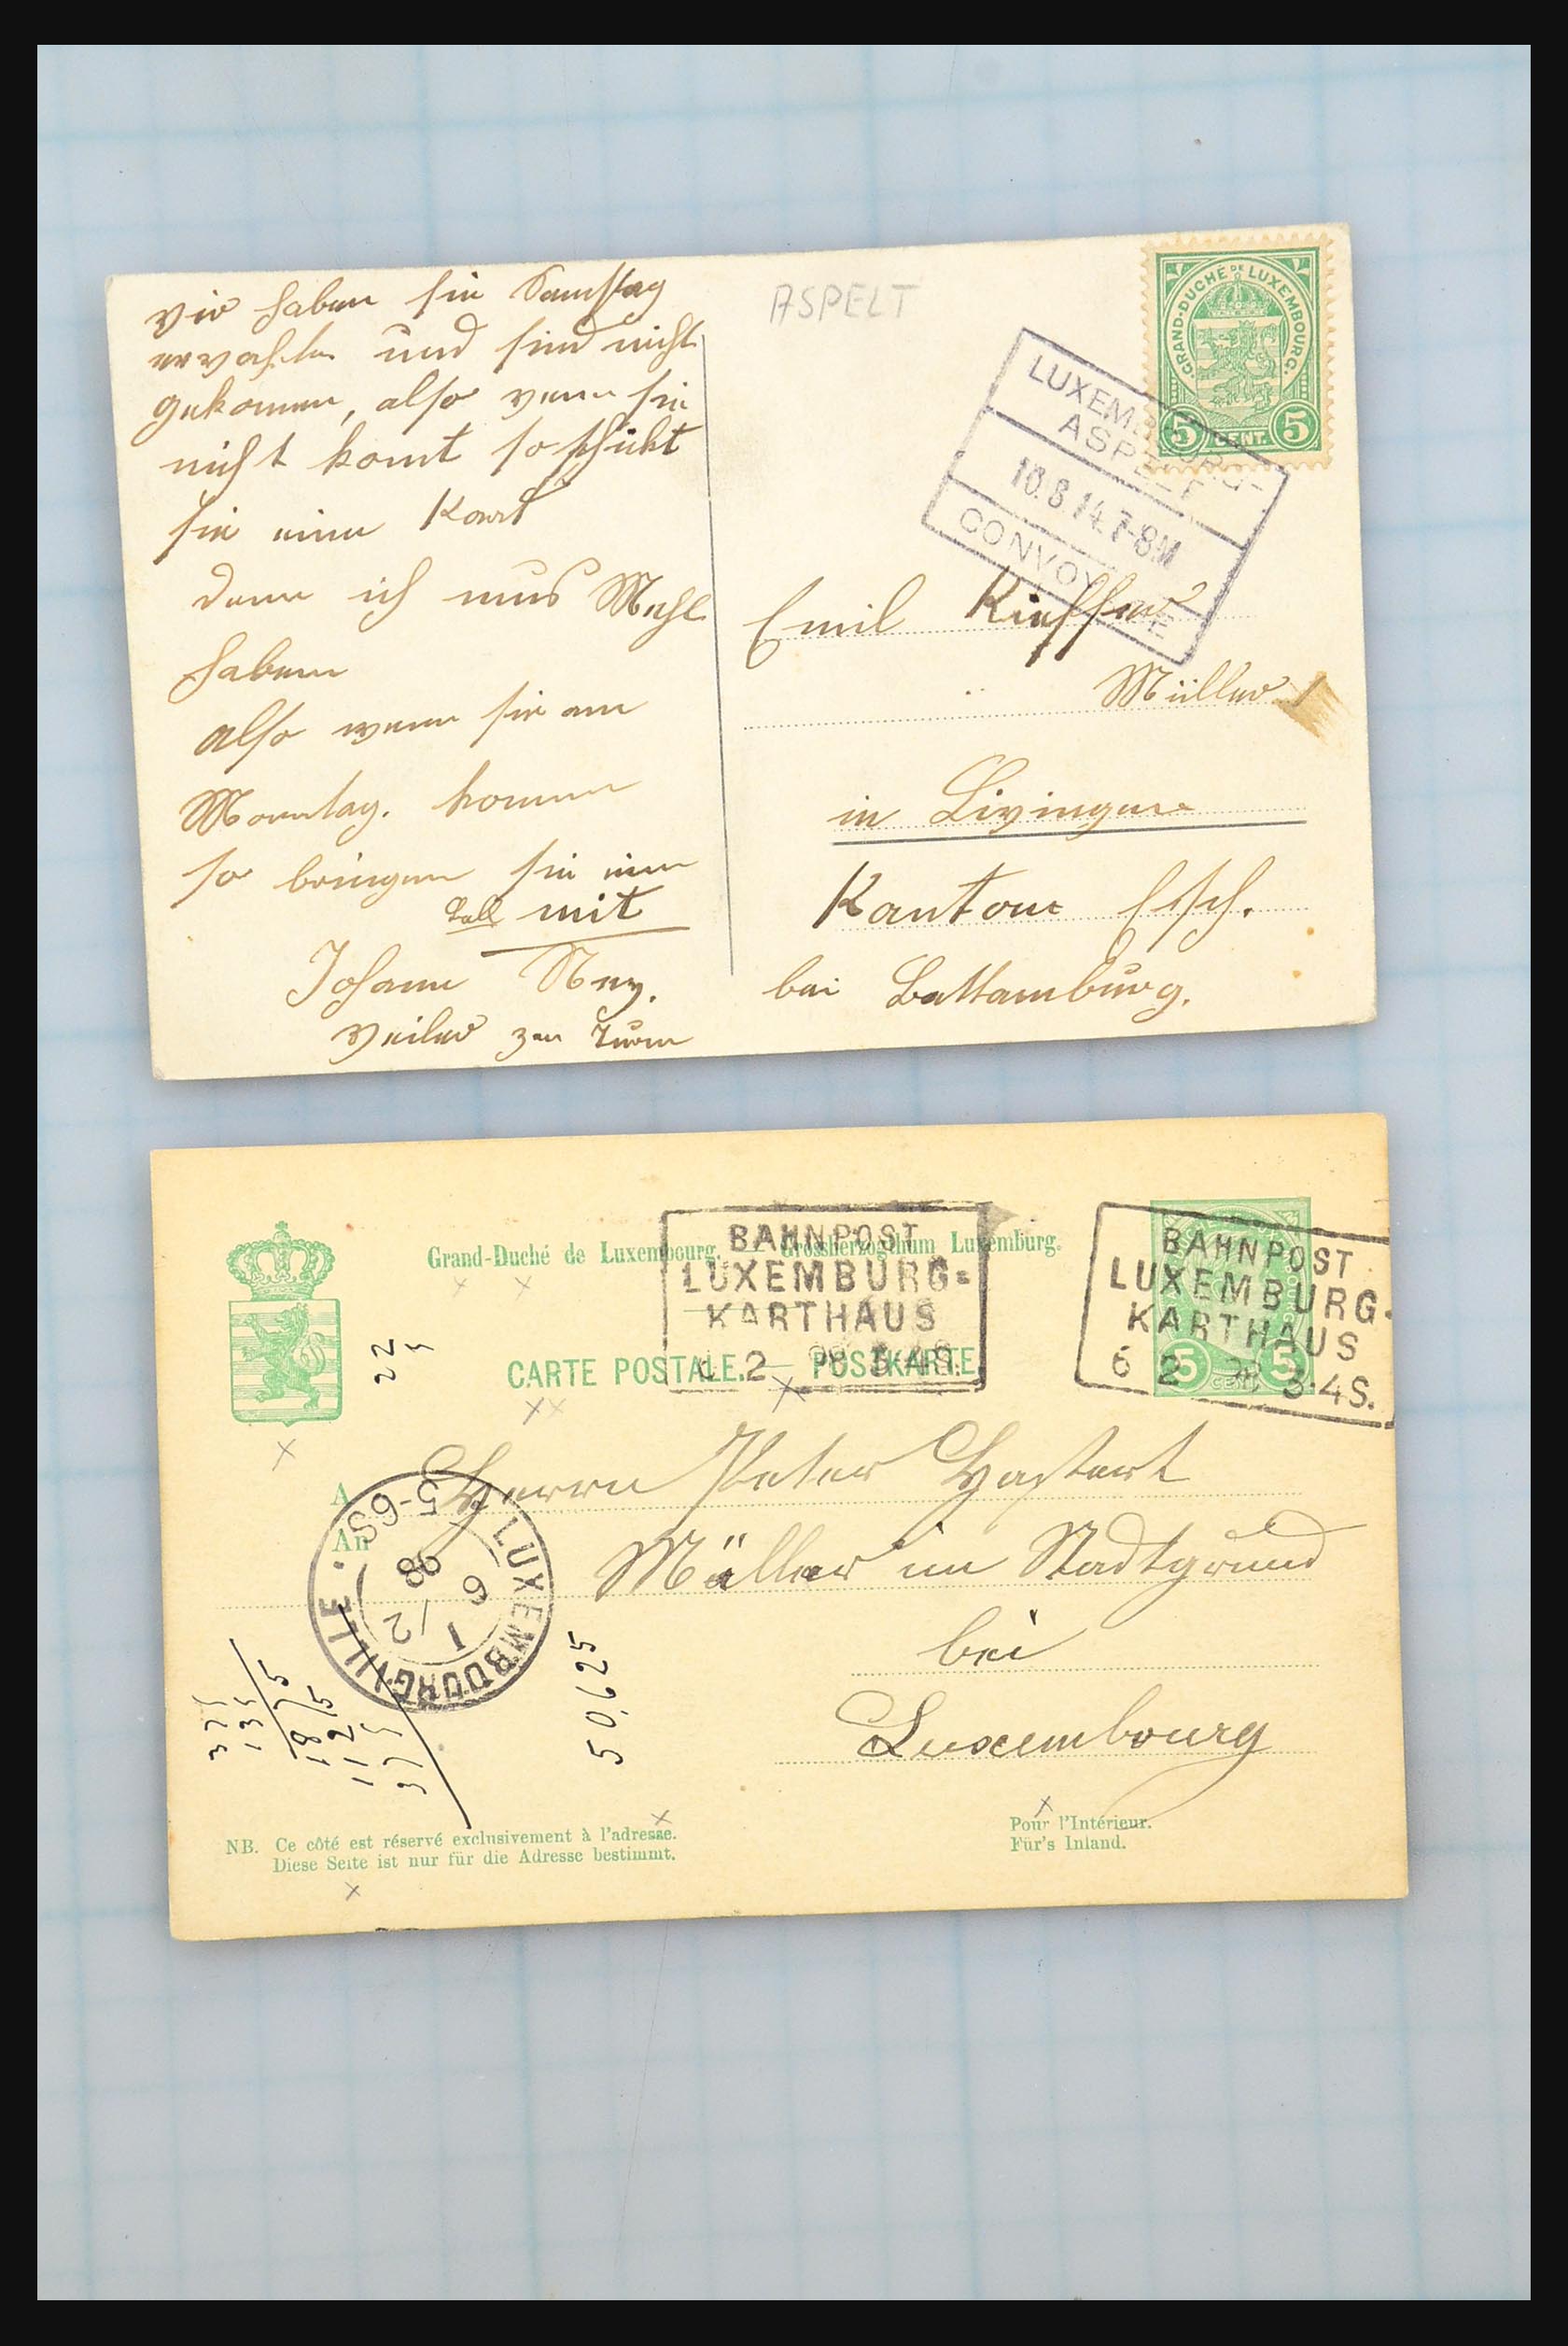 vir haben sie Samstag
erwahten und sind nicht
gekomen, also venn sie
nicht komt so schickt
sie eine Kart
denn ich mus Mehl
haben
also wenn sie am
Monntag. kommen
so bringen sie eine
mit
Johann Ney.
Veiler zen Turm
ASPELT
GRAND-DUCHÉ DE LUXEMBOURG.
5 CENT. 5
LUXEMBOURG-
ASPELT
10.8.14.7-8M
CONVOY
Emil Kieffer
Müller
in Livingen
Kanton Esch.
bei Bettamburg.
Grand-Duché de Luxembourg. — Grossherzogthum Luxemburg.
BAHNPOST
LUXEMBURG=
KARTHAUS
2 98 3-4S.
BAHNPOST
LUXEMBURG-
KARTHAUS
6 2 98 3-4S.
5 CENT 5
CARTE POSTALE. — POSTKARTE
22
5
A
An
Herrn Peter Hastert
Müller im Stadtgrund
bei
Luxembourg
LUXEMBOURG-VILLE
5-6S
98
6
12
1
375
135
1875
1125
375
50,625
NB. Ce côté est réservé exclusivement à l'adresse.
Diese Seite ist nur für die Adresse bestimmt.
Pour l'Intérieur.
Für's Inland.